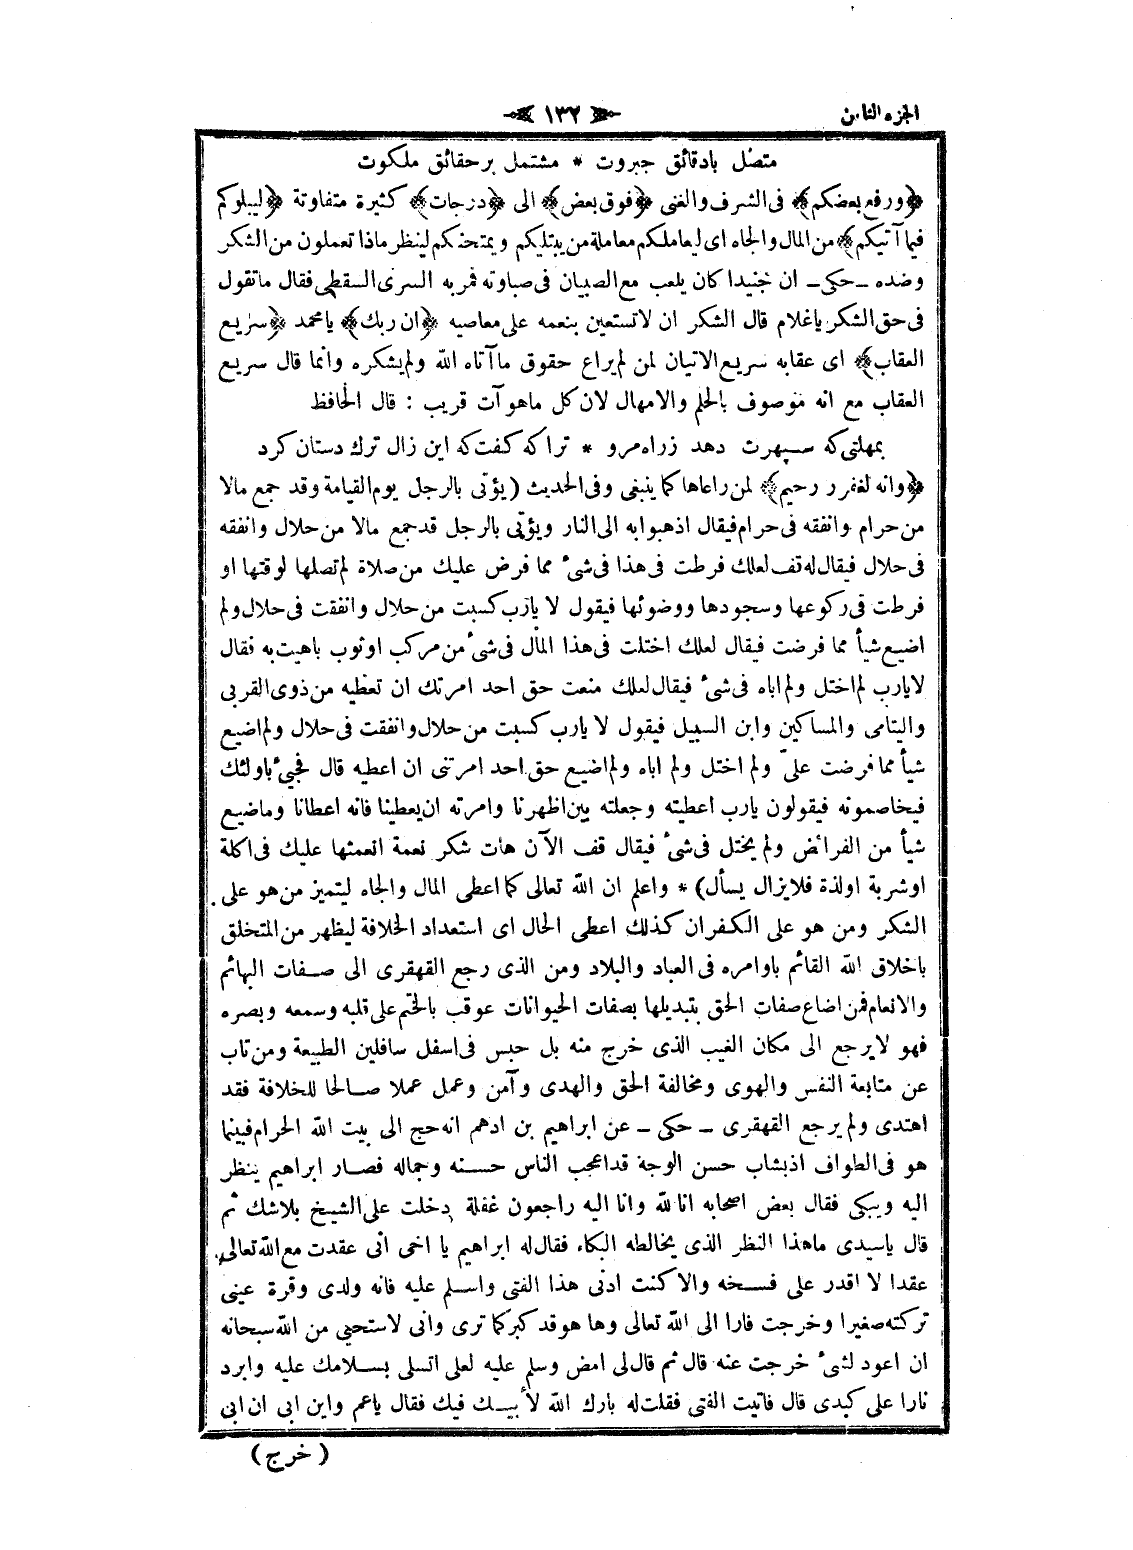 الجزء الثامن
١٣٢
متصل بادقائق جبروت * مشتمل بر حقائق ملكوت
﴿ورفع بعضكم﴾ فى الشرف والغنى ﴿فوق بعض﴾ الى ﴿درجات﴾ كثيرة متفاوتة ﴿ليبلوكم
فيما آتيكم﴾ من المال والجاه اى ليعاملكم معاملة من يبتليكم ويمتحنكم لينظر ماذا تعملون من الشكر
وضده ـ حكى ـ ان جنيدا كان يلعب مع الصبيان فى صباوته فمر به السرى السقطى فقال ما تقول
فى حق الشكر ياغلام قال الشكر ان لا تستعين بنعمه على معاصيه ﴿ان ربك﴾ يامحمد ﴿سريع
العقاب﴾ اى عقابه سريع الاتيان لمن لم يراع حقوق ما آتاه الله ولم يشكره وانما قال سريع
العقاب مع انه موصوف بالحلم والامهال لان كل ماهو آت قريب : قال الحافظ
بمهلتى كه سپهرت دهد زراه مرو * تراكه كفت كه اين زال ترك دستان كرد
﴿وانه لغفور رحيم﴾ لمن راعاها كما ينبغى وفى الحديث (يؤتى بالرجل يوم القيامة وقد جمع مالا
من حرام وانفقه فى حرام فيقال اذهبوا به الى النار ويؤتى بالرجل قد جمع مالا من حلال وانفقه
فى حلال فيقال له قف لعلك فرطت فى هذا فى شىء مما فرض عليك من صلاة لم تصلها لوقتها او
فرطت فى ركوعها وسجودها ووضوئها فيقول لا يارب كسبت من حلال وانفقت فى حلال ولم
اضيع شيأ مما فرضت فيقال لعلك اختلت فى هذا المال فى شىء من مركب او ثوب باهيت به فقال
لا يارب لم اختل ولم اباه فى شىء فيقال لعلك منعت حق احد امرتك ان تعطيه من ذوى القربى
واليتامى والمساكين وابن السبيل فيقول لا يارب كسبت من حلال وانفقت فى حلال ولم اضيع
شيأ مما فرضت علىّ ولم اختل ولم اباه ولم اضيع حق احد امرتنى ان اعطيه قال فجىء باولئك
فيخاصمونه فيقولون يارب اعطيته وجعلته بين اظهرنا وامرته ان يعطينا فانه اعطانا وماضيع
شيأ من الفرائض ولم يختل فى شىء فيقال قف الآن هات شكر نعمة انعمتها عليك فى اكلة
او شربة او لذة فلا يزال يسأل) * واعلم ان الله تعالى كما اعطى المال والجاه ليتميز من هو على
الشكر ومن هو على الكفران كذلك اعطى الحال اى استعداد الخلافة ليظهر من المتخلق
باخلاق الله القائم باوامره فى العباد والبلاد ومن الذى رجع القهقرى الى صفات البهائم
والانعام فمن اضاع صفات الحق بتبديلها بصفات الحيوانات عوقب بالختم على قلبه وسمعه وبصره
فهو لا يرجع الى مكان الغيب الذى خرج منه بل حبس فى اسفل سافلين الطبيعة ومن تاب
عن متابعة النفس والهوى ومخالفة الحق والهدى وآمن وعمل عملا صالحا للخلافة فقد
اهتدى ولم يرجع القهقرى ـ حكى ـ عن ابراهيم بن ادهم انه حج الى بيت الله الحرام فبينما
هو فى الطواف اذ بشاب حسن الوجة قد اعجب الناس حسنه وجماله فصار ابراهيم ينظر
اليه ويبكى فقال بعض اصحابه انا لله وانا اليه راجعون غفلة دخلت على الشيخ بلاشك ثم
قال ياسيدى ماهذا النظر الذى يخالطه البكاء فقال له ابراهيم يا اخى انى عقدت مع الله تعالى
عقدا لا اقدر على فسخه والا كنت ادنى هذا الفتى واسلم عليه فانه ولدى وقرة عينى
تركته صغيرا وخرجت فارا الى الله تعالى وها هو قد كبر كما ترى وانى لاستحيى من الله سبحانه
ان اعود لشىء خرجت عنه قال ثم قال لى امض وسلم عليه لعلى اتسلى بسلامك عليه وابرد
نارا على كبدى قال فاتيت الفتى فقلت له بارك الله لأبيك فيك فقال ياعم واين ابى ان ابى
( خرج )